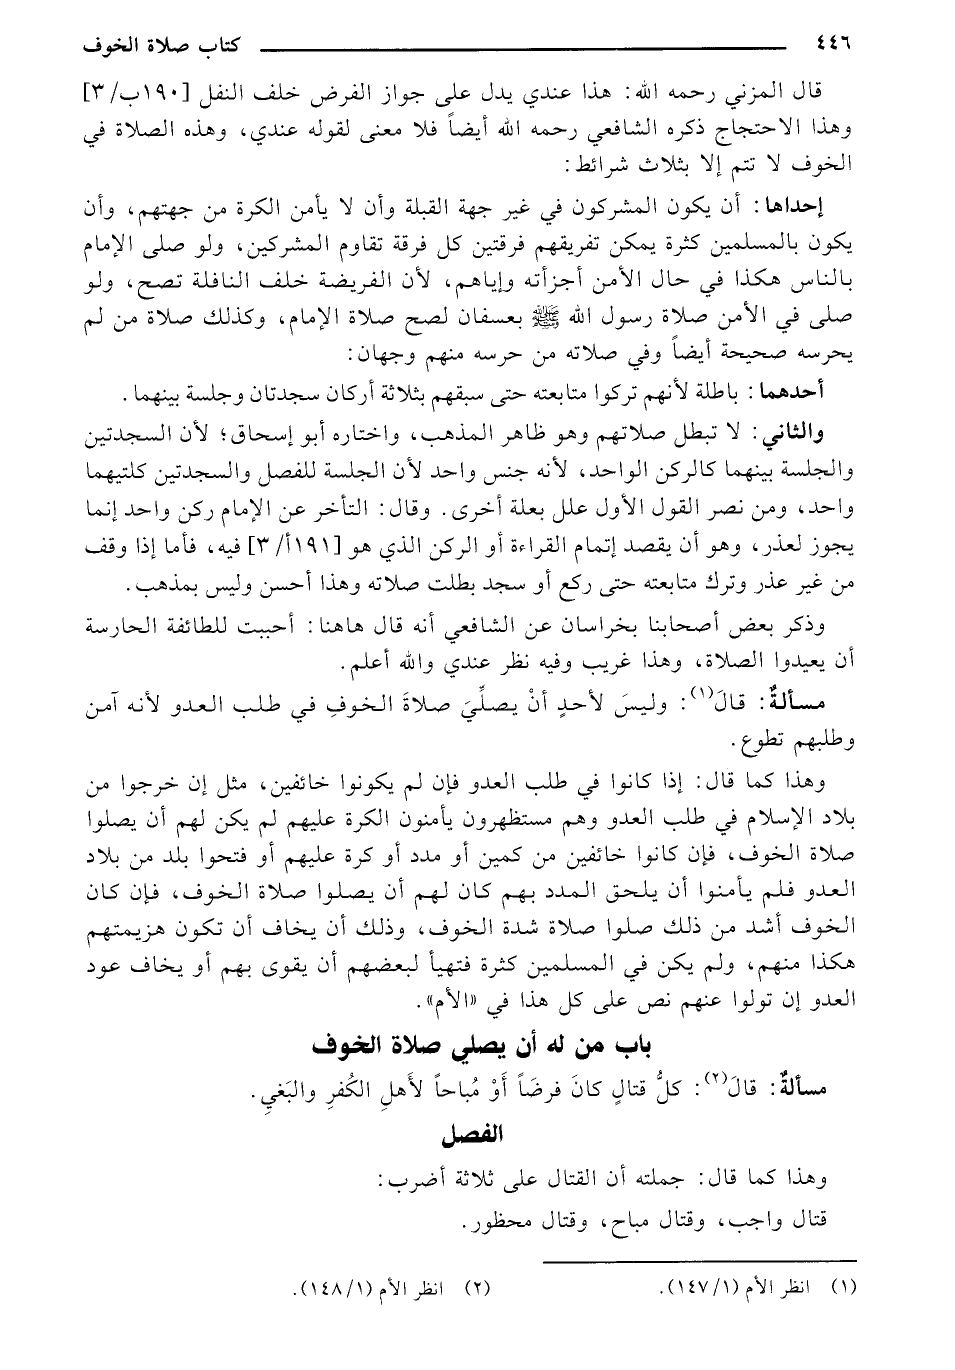 ٤٤٦ كتاب صلاة الخوف
قال المزني رحمه الله: هذا عندي يدل على جواز الفرض خلف النفل [١٩٠ب/ ٣]
وهذا الاحتجاج ذكره الشافعي رحمه الله أيضاً فلا معنى لقوله عندي، وهذه الصلاة في
الخوف لا تتم إلا بثلاث شرائط:
إحداها: أن يكون المشركون في غير جهة القبلة وأن لا يأمن الكرة من جهتهم، وأن
يكون بالمسلمين كثرة يمكن تفريقهم فرقتين كل فرقة تقاوم المشركين، ولو صلى الإمام
بالناس هكذا في حال الأمن أجزأته وإياهم، لأن الفريضة خلف النافلة تصح، ولو
صلى في الأمن صلاة رسول الله ﷺ بعسفان لصح صلاة الإمام، وكذلك صلاة من لم
يحرسه صحيحة أيضاً وفي صلاته من حرسه منهم وجهان:
أحدهما: باطلة لأنهم تركوا متابعته حتى سبقهم بثلاثة أركان سجدتان وجلسة بينهما.
والثاني: لا تبطل صلاتهم وهو ظاهر المذهب، واختاره أبو إسحاق؛ لأن السجدتين
والجلسة بينهما كالركن الواحد، لأنه جنس واحد لأن الجلسة للفصل والسجدتين كلتيهما
واحد، ومن نصر القول الأول علل بعلة أخرى. وقال: التأخر عن الإمام ركن واحد إنما
يجوز لعذر، وهو أن يقصد إتمام القراءة أو الركن الذي هو [١٩١أ/ ٣] فيه، فأما إذا وقف
من غير عذر وترك متابعته حتى ركع أو سجد بطلت صلاته وهذا أحسن وليس بمذهب.
وذكر بعض أصحابنا بخراسان عن الشافعي أنه قال هاهنا: أحببت للطائفة الحارسة
أن يعيدوا الصلاة، وهذا غريب وفيه نظر عندي والله أعلم.
مسألةٌ: قالَ(١): وليسَ لأحدٍ أنْ يصلِّيَ صلاةَ الخوفِ في طلب العدو لأنه آمن
وطلبهم تطوع.
وهذا كما قال: إذا كانوا في طلب العدو فإن لم يكونوا خائفين، مثل إن خرجوا من
بلاد الإسلام في طلب العدو وهم مستظهرون يأمنون الكرة عليهم لم يكن لهم أن يصلوا
صلاة الخوف، فإن كانوا خائفين من كمين أو مدد أو كرة عليهم أو فتحوا بلد من بلاد
العدو فلم يأمنوا أن يلحق المدد بهم كان لهم أن يصلوا صلاة الخوف، فإن كان
الخوف أشد من ذلك صلوا صلاة شدة الخوف، وذلك أن يخاف أن تكون هزيمتهم
هكذا منهم، ولم يكن في المسلمين كثرة فتهيأ لبعضهم أن يقوى بهم أو يخاف عود
العدو إن تولوا عنهم نص على كل هذا في «الأم».
باب من له أن يصلي صلاة الخوف
مسألةٌ: قالَ(٢): كلُّ قتالٍ كانَ فرضَاً أَوْ مُباحاً لأَهلِ الكُفرِ والبَغي.
الفصل
وهذا كما قال: جملته أن القتال على ثلاثة أضرب:
قتال واجب، وقتال مباح، وقتال محظور.
(١) انظر الأم (١/ ١٤٧). (٢) انظر الأم (١/ ١٤٨).